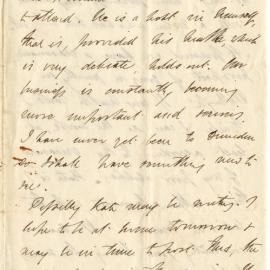 to attend. He is a host in himself,
that is, provided his health which
is very delicate holds out. Our
business is constantly becoming
more important and serious.
I have never yet been to
so shall have something new to
see.
Possibly Kate may be writing. I
hope to be at home tomorrow &
may be in time to post this, the